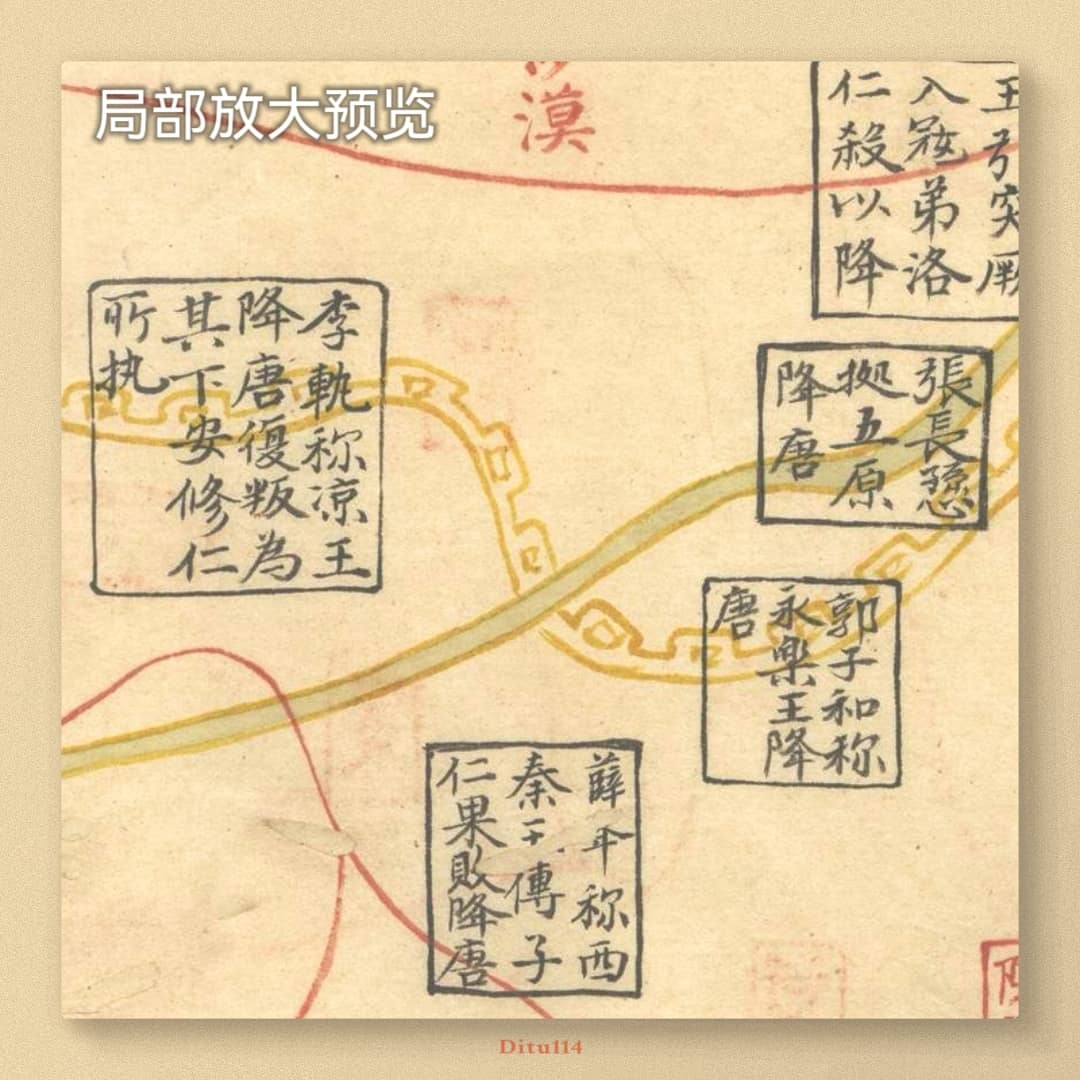 局部放大预览
漠
王引突厥
入寇弟洛
仁殺以降
李軌称凉王
降唐復叛為
其下安修仁
所执
張長愻
拠五原
降唐
郭子和称
永樂王降
唐
薛㪯称西
秦王傳子
仁果敗降唐
Ditu114